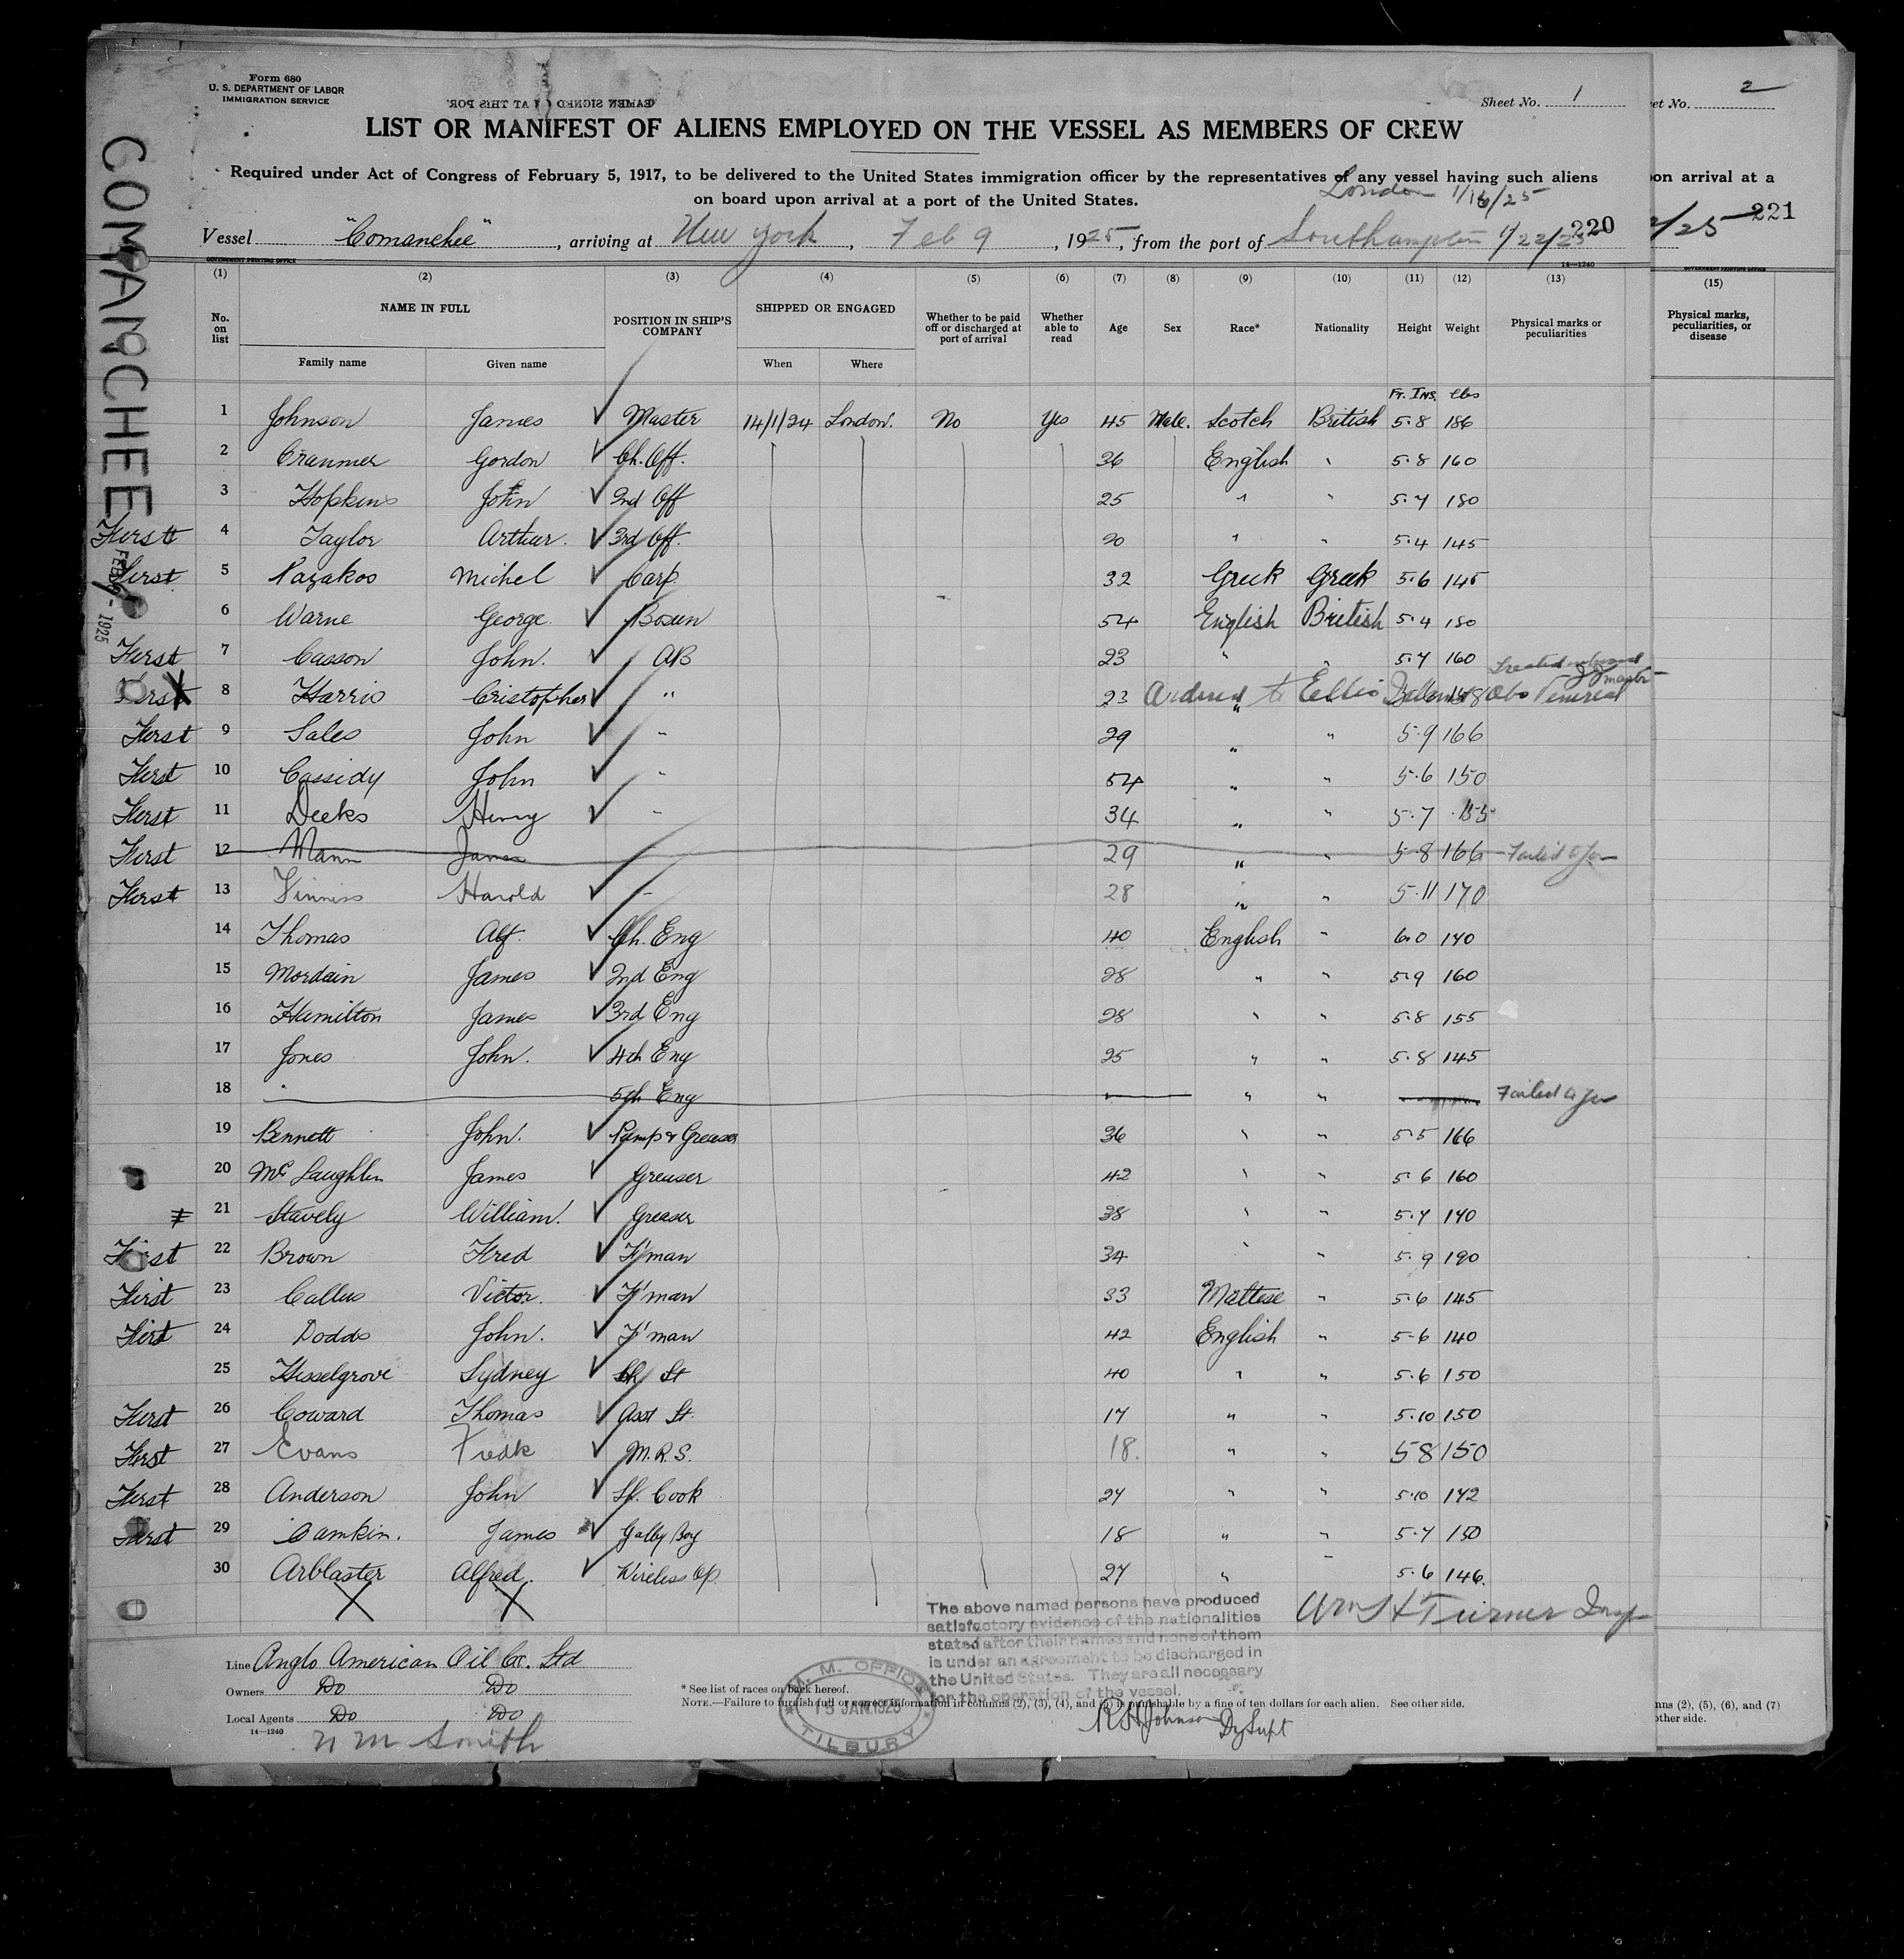 Form 680
U. S. DEPARTMENT OF LABOR
IMMIGRATION SERVICE
Sheet No. 1
et No. 2
COMANCHEE
FEB 9 - 1925
LIST OR MANIFEST OF ALIENS EMPLOYED ON THE VESSEL AS MEMBERS OF CREW
Required under Act of Congress of February 5, 1917, to be delivered to the United States immigration officer by the representatives of any vessel having such aliens
on board upon arrival at a port of the United States.
on arrival at a
London 1/16/25
Vessel "Comanchee", arriving at New York, Feb 9, 1925, from the port of Southampton 1/22/25 220
/25 221
GOVERNMENT PRINTING OFFICE 14—1240
(1) (2) (3) (4) (5) (6) (7) (8) (9) (10) (11) (12) (13) (15)
No. on list NAME IN FULL Family name Given name POSITION IN SHIP'S COMPANY SHIPPED OR ENGAGED When Where Whether to be paid off or discharged at port of arrival Whether able to read Age Sex Race* Nationality Height Weight Physical marks or peculiarities
Physical marks, peculiarities, or disease
Ft. Ins. lbs
1 Johnson James Master 14/1/24 London. No Yes 45 Male. Scotch British 5.8 186
2 Cranmer Gordon Ch. Off. 36 English " 5.8 160
3 Hopkins John 2nd Off 25 " " 5.7 180
First 4 Taylor Arthur. 3rd Off. 20 " " 5.4 145
First 5 Pazakos Michel Carp. 32 Greek Greek 5.6 145
6 Warne George. Bosun 54 English British 5.4 180
First 7 Casson John. AB 23 " " 5.7 160
First 8 Harris Cristopher " 23 Ordered to Ellis Obs Venereal
First 9 Sales John " 29 " " 5.9 166
First 10 Cassidy John " 54 " " 5.6 150
First 11 Deeks Henry " 34 " " 5.7 155
First 12 Mann James 29 " " 5.8 166 Failed to Join
First 13 Harold " 28 " " 5.11 170
14 Thomas Alf. Ch. Eng 40 English " 6.0 170
15 Mordain James 2nd Eng 28 " " 5.9 160
16 Hamilton James 3rd Eng 28 " " 5.8 155
17 Jones John. 4th Eng 25 " " 5.8 145
18 5th Eng " " Failed to Join
19 Bennett John. Pump & Greaser 36 " " 5.5 166
20 McLaughlin James Greaser 42 " " 5.6 160
21 Stavely William. Greaser 38 " " 5.7 170
First 22 Brown Fred F'man 34 " " 5.9 190
First 23 Callus Victor. F'man 33 Maltese " 5.6 145
First 24 Dodds John. F'man 42 English " 5.6 140
25 Hesselgrove Sydney Ch. St 40 " " 5.6 150
First 26 Coward Thomas Asst St. 17 " " 5.10 150
First 27 Evans Fredk M.R.S. 18. " " 5 8 150
First 28 Anderson John Sh. Cook 27 " " 5.10 172
First 29 James Galley Boy 18 " " 5.7 150
30 Arblaster Alfred. Wireless Op. 27 " " 5.6 146.
The above named persons have produced
satisfactory evidence of the nationalities
stated after their names and none of them
is under an agreement to be discharged in
the United States. They are all necessary
for the operation of the vessel.
Wm H Turner Insp
Line Anglo American Oil Co. Ltd
Owners Do Do
Local Agents Do Do
14—1240
N M Smith
M. M. OFFICE
15 JAN. 1925
TILBURY
* See list of races on back hereof.
NOTE.—Failure to furnish full or correct information in columns (2), (3), (4), and (5) is punishable by a fine of ten dollars for each alien. See other side.
R H Johnson Dy Supt
nns (2), (5), (6), and (7)
other side.